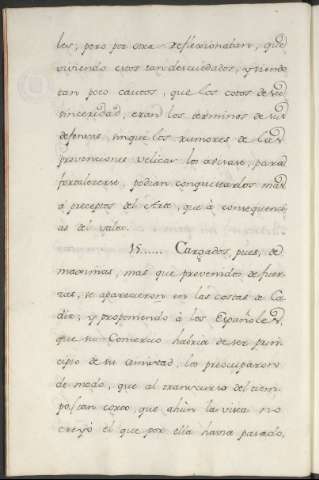 les, pero por otra reflexionaban, que
viviendo estos tan descuidados, y siendo
tan poco cautos, que los cotos de su
sinceridad, eran los terminos de sus
defensas, sin que los rumores de las
prevenciones
para
fortalecerse, podian conquistarlos mas
á preceptos del Arte, que á consequenci-
as del valor.
15...... Cargados, pues, de
maximas, mas que prevenidos de fuer-
zas, se aparecieron en las costas de Ca-
diz, y proponiendo á los Españoles,
que su Comercio habria de ser prin-
cipio de su amistad, los preocuparon
de modo, que al transcurso del tiem-
po (tan corto, que ahùn la vista no
creyó el que por ella havia pasado,